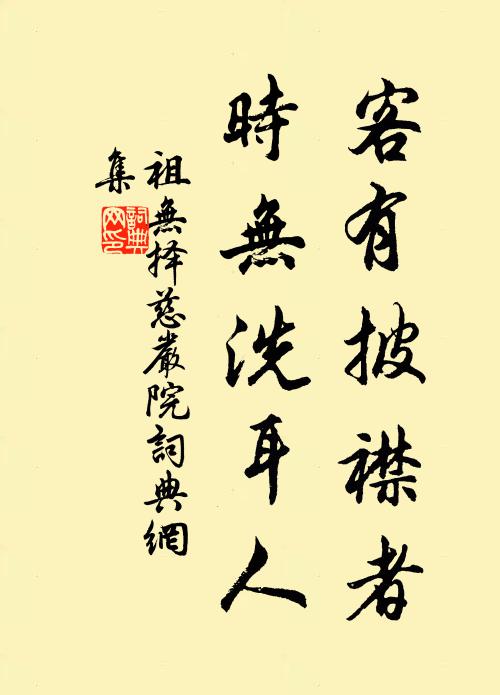 客有披襟者
時無洗耳人
祖無择慈巖院詞典網
集
詞典
网印